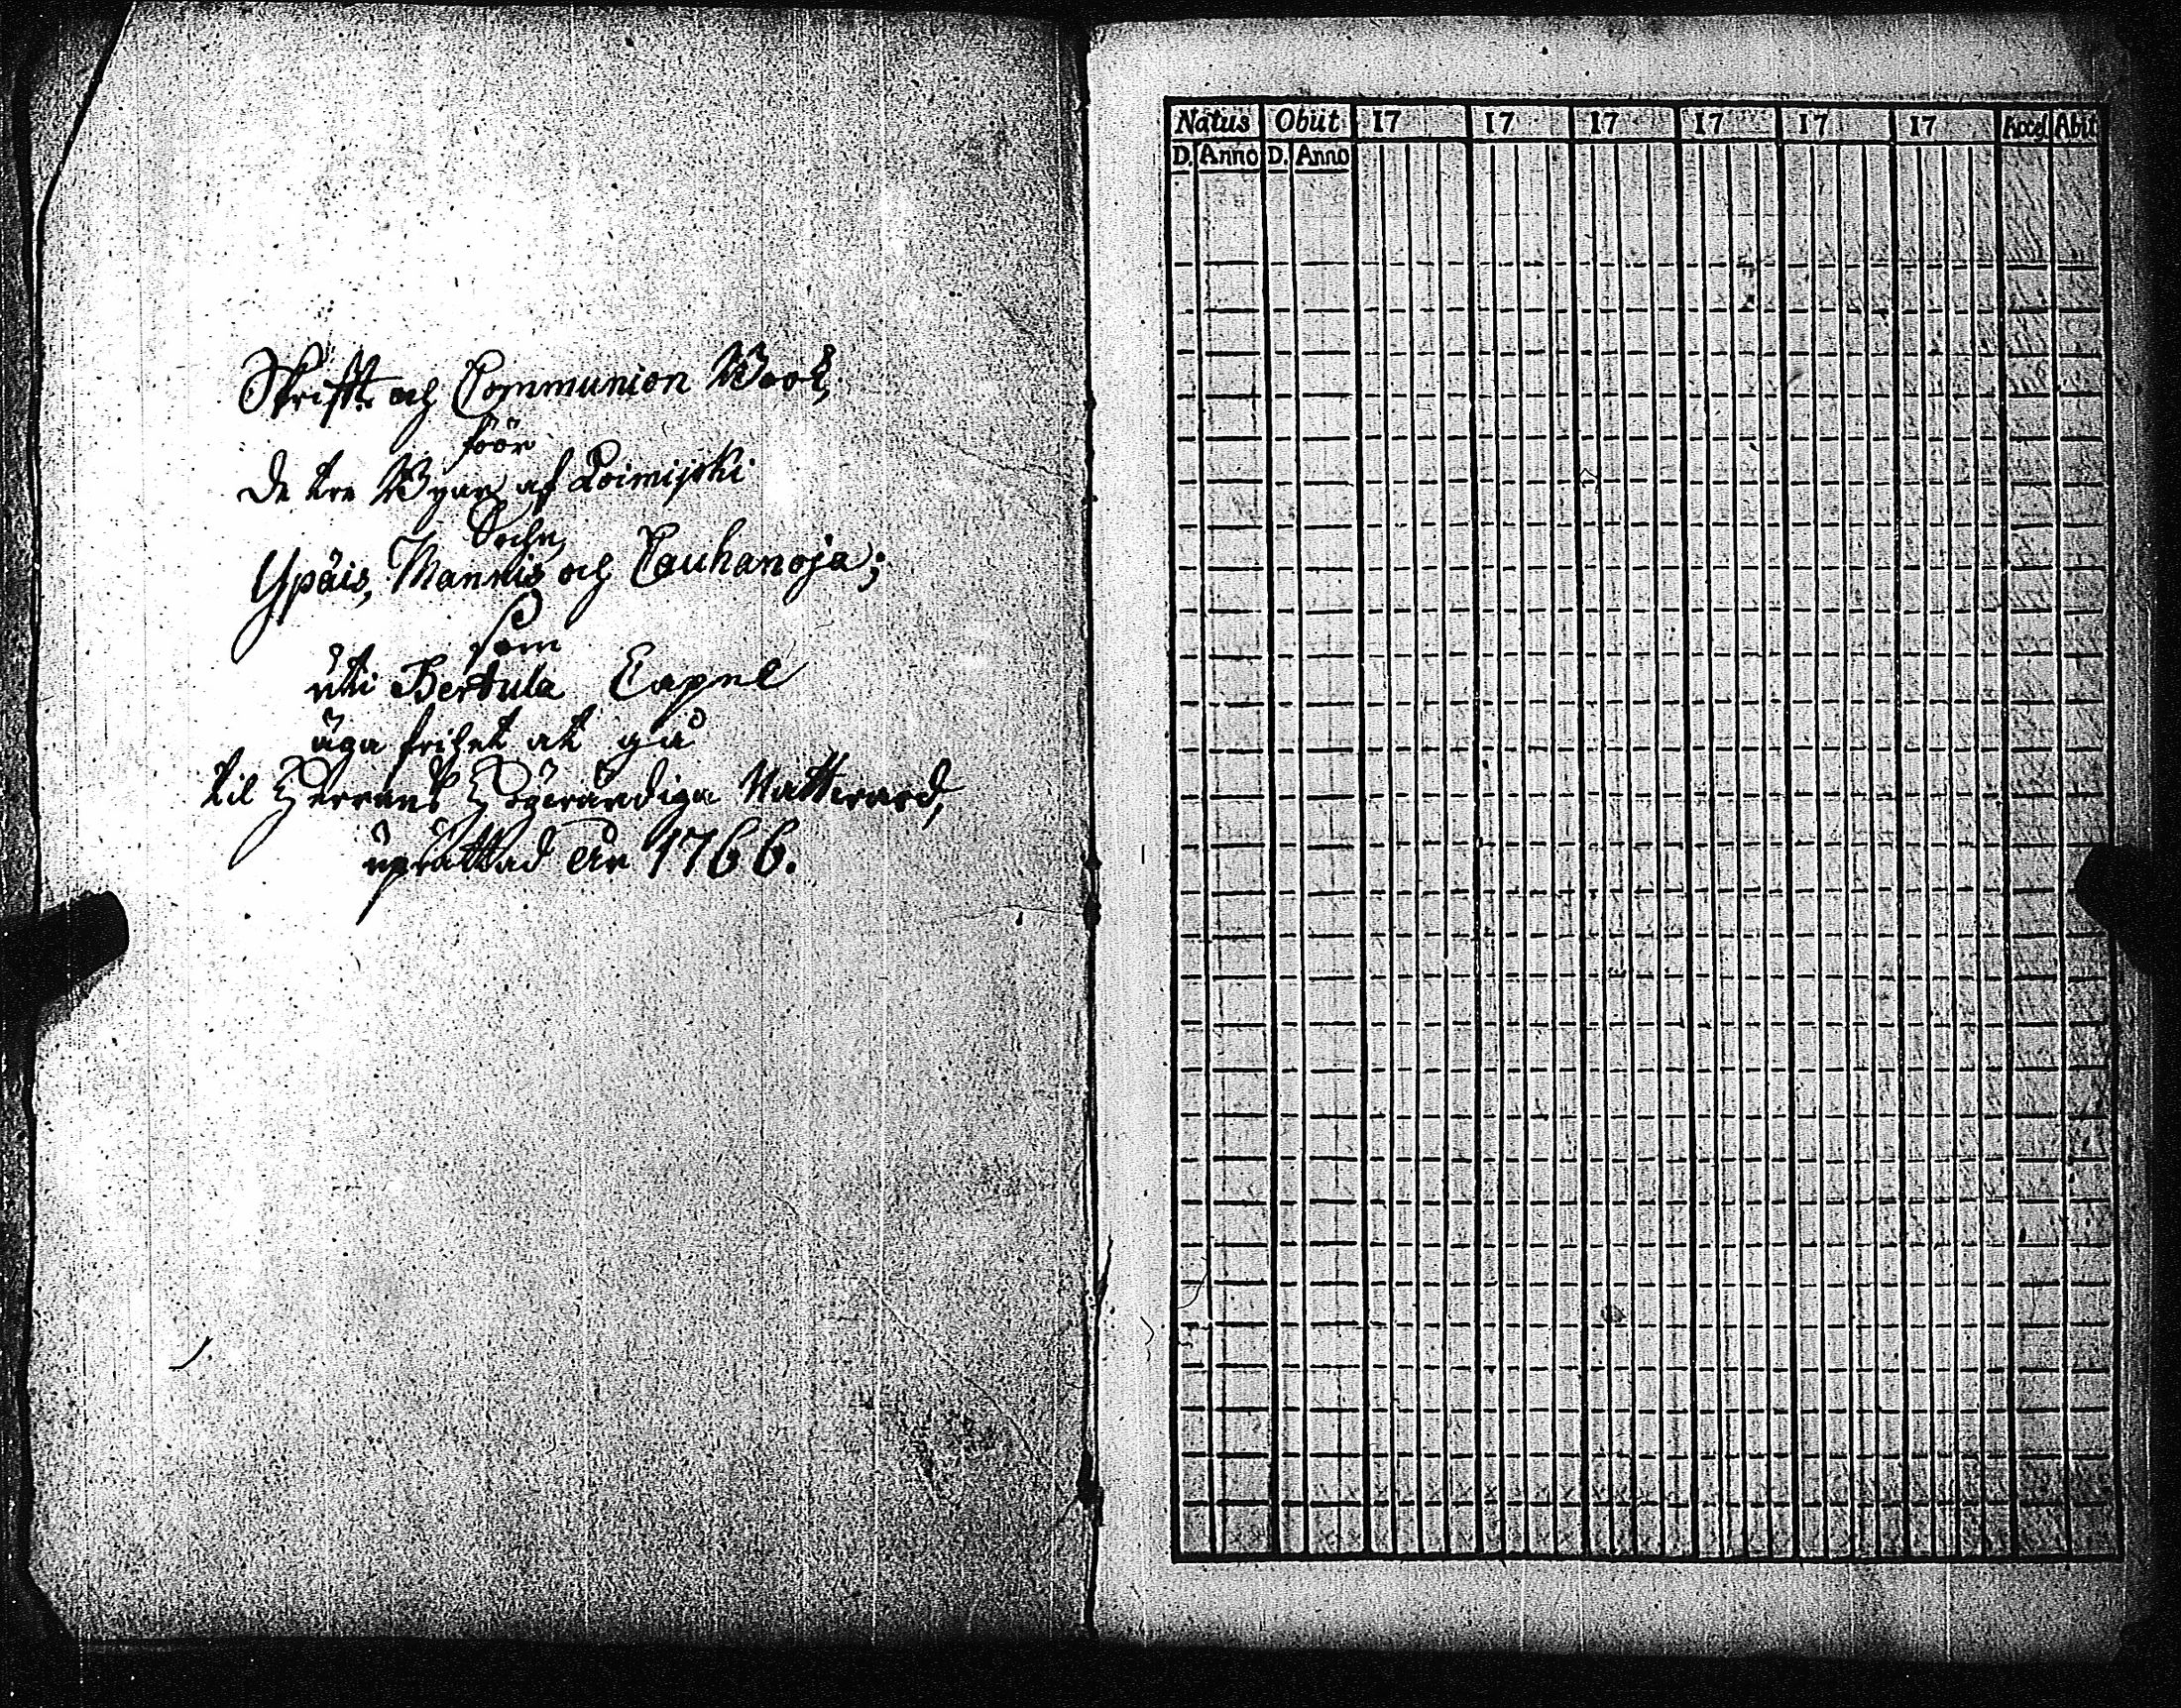 Skrifft och Communion Book,
föör
De tre Byar af Loimijoki
Sochn,
Ypäis, Mannis och Cauhanoja;
som
uti Bertula Capel
äga frihet at gå
til Herrans Högwärdiga Nattward,
uprättad År 1766.
Natus Obiit 17 17 17 17 17 17 Acces. Abit
D. Anno D. Anno